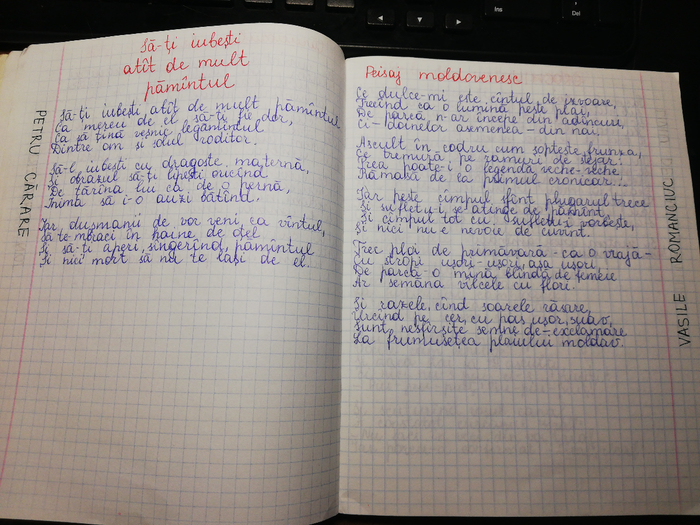 Să-ți iubești
atît de mult
pămîntul
PETRU CĂRARE
Să-ți iubești atît de mult pămîntul
Ca mereu de el să-ți fie dor,
Ca să țină veșnic legămîntul
Dintre om și solul roditor.
Să-l iubești cu dragoste maternă,
Și obrazul să-ți lipești oricînd
De țărîna lui ca de o pernă,
Inima să i-o auzi bătînd.
Iar dușmanii de vor veni, ca vîntul,
Să te-mbraci în haine de oțel
Și să-ți aperi, sîngerînd, pămîntul
Și nici mort să nu te lași de el.
Peisaj moldovenesc
Ce dulce-mi este cîntul de izvoare,
Trecînd ca o lumină peste plai,
De parcă n-ar începe din adîncuri,
Ci-doinelor asemenea-din nai.
Ascult în codru cum șoptește frunza,
Ce tremură pe ramuri de stejar:
Prea poate-i o legendă veche-veche
Rămasă de la primul cronicar...
Iar peste cîmpul sfînt plugarul trece
Și sufletu-i se atinge de pămînt,
Și cîmpul tot cu sufletu-i vorbește,
Și nici nu e nevoie de cuvînt.
Trec ploi de primăvară-ca o vrajă-
Cu stropi ușori-ușori, așa ușori,
De parcă o mînă blîndă de femeie
Ar semăna vîlcele cu flori.
Și razele, cînd soarele răsare,
Urcînd pe cer, cu pas ușor, suav,
Sunt nesfîrșite semne de-exclamare
La frumusețea plaiului moldav.
VASILE ROMANCIUC
Ins
Del